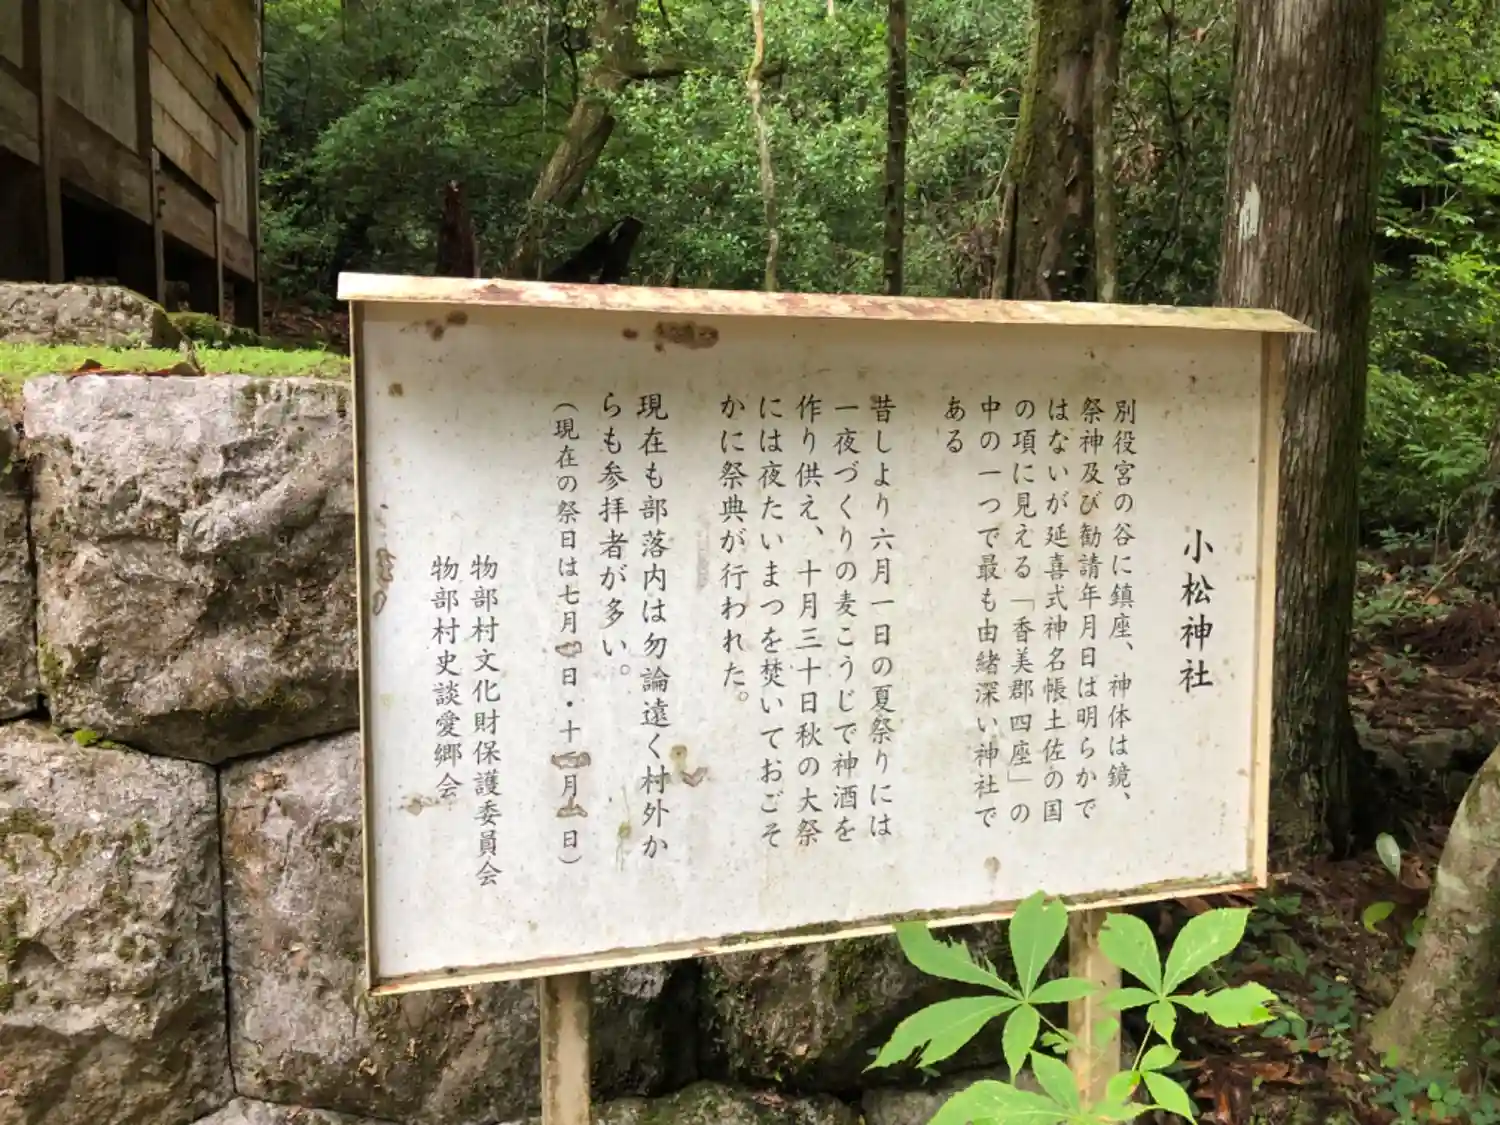 小松神社
別役宮の谷に鎮座、神体は鏡、
祭神及び勧請年月日は明らかで
はないが延喜式神名帳土佐の国
の項に見える「香美郡四座」の
中の一つで最も由緒深い神社で
ある
昔しより六月一日の夏祭りには
一夜づくりの麦こうじで神酒を
作り供え、十月三十日秋の大祭
には夜たいまつを焚いておごそ
かに祭典が行われた。
現在も部落内は勿論遠く村外か
らも参拝者が多い。
（現在の祭日は七月 日・十 月 日）
物部村文化財保護委員会
物部村史談愛郷会